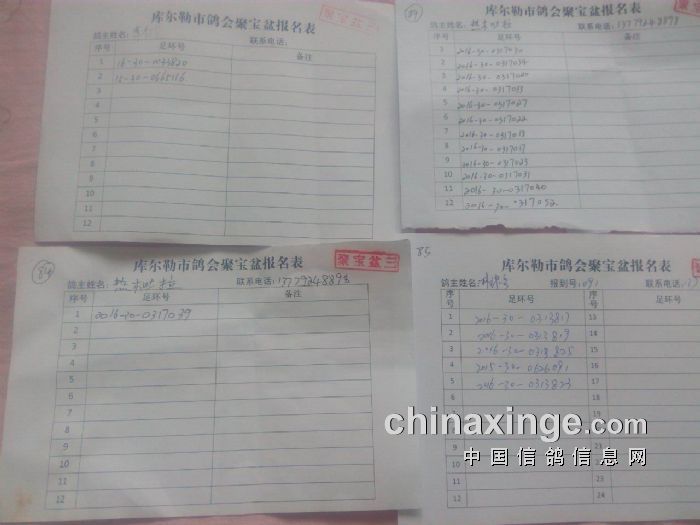 库尔勒市鸽会聚宝盆报名表
聚宝盆三
鸽主姓名:
联系电话:
序号 足环号 备注
1
2 15-30-0665116
3
4
5
6
7
8
9
10
11
12
84
鸽主姓名:
联系电话: 13779248898
序号 足环号 备注
1 2016-30-0317030
2 2016-30-0317034
3 2016-30-0317020
4 2016-30-0317033
5 2016-30-0317027
6 2016-30-0317022
7 2016-30-0317018
8 2016-30-0317037
9 2016-30-0317023
10 2016-30-0317031
11 2016-30-0317040
12 2016-30-0317052
84
库尔勒市鸽会聚宝盆报名表
聚宝盆三
鸽主姓名:
联系电话: 13779248898
序号 足环号 备注
1 2016-30-0317039
2
3
4
5
6
7
8
9
10
11
12
85
库尔勒市鸽会聚宝盆报名表
鸽主姓名:
报到号: 091
联系电话:
序号 足环号 序号 足环号
1 2016-30-0313817 13
2 2016-30-0313809 14
3 2016-30-0318825 15
4 2015-30-0626091 16
5 2016-30-0313823 17
6
7
8
9
10
11 23
12 24
chinaxinge.com
中国信鸽信息网